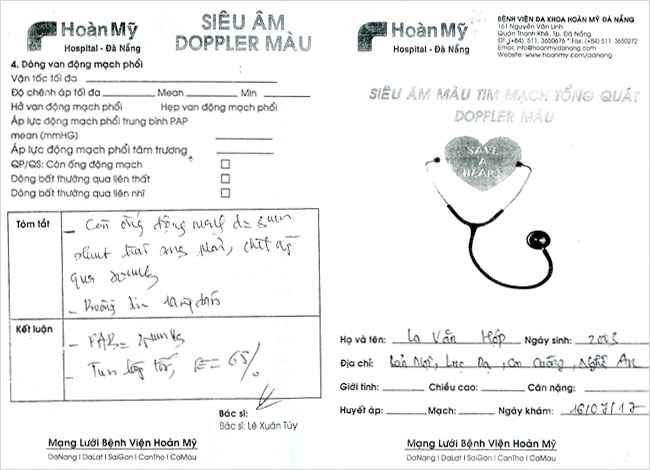 Hoàn Mỹ
Hospital - Đà Nẵng
SIÊU ÂM
DOPPLER MÀU
4. Dòng van động mạch phổi
Vận tốc tối đa
Độ chênh áp tối đa Mean Min
Hở van động mạch phổi Hẹp van động mạch phổi
Áp lực động mạch phổi trung bình PAP
mean (mmHG)
Áp lực động mạch phổi tâm trương
QP/QS: Còn ống động mạch
Dòng bất thường qua liên thất
Dòng bất thường qua liên nhĩ
Tóm tắt
- Còn ống động mạch d= 3mm
shunt trái sang phải, chênh áp
qua
- Buồng tim
Kết luận
- PAPs=
- Tim bóp tốt, EF= 65%
Bác sĩ:
Bác sĩ: Lê Xuân Túy
Mạng Lưới Bệnh Viện Hoàn Mỹ
DaNang | DaLat | SaiGon | CanTho | CaMau
Hoàn Mỹ
Hospital - Đà Nẵng
BỆNH VIỆN ĐA KHOA HOÀN MỸ ĐÀ NẴNG
161 Nguyễn Văn Linh
Quận Thanh Khê, Tp. Đà Nẵng
ĐT: (+84) 511. 3650676 * Fax: (+84) 511. 3650272
Email: info@hoanmydanang.com
Website: www.hoanmy.com/danang
SIÊU ÂM MÀU TIM MẠCH TỔNG QUÁT
DOPPLER MÀU
SAVE
A
HEART
Họ và tên: La Văn Hợp Ngày sinh: 2003
Địa chỉ: Bản Ngữ, Lục Dạ, Con Cuông, Nghệ An
Giới tính: Chiều cao: Cân nặng:
Huyết áp: Mạch: Ngày khám: 16/07/17
Mạng Lưới Bệnh Viện Hoàn Mỹ
DaNang | DaLat | SaiGon | CanTho | CaMau